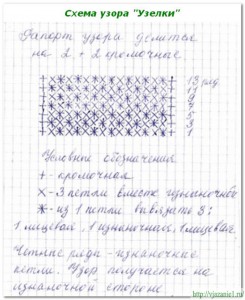 Схема узора "Узелки"
Раппорт узора делится
на 2 + 2 кромочные
13 ряд
11
9
7
5
3
1
Условные обозначения
+ - кромочная
x - 3 петли вместе изнаночной
* - из 1 петли вывязать 3:
1 лицевая, 1 изнаночная, 1 лицевая
Чётные ряды - изнаночные
петли. Узор получается на
изнаночной стороне
http://vjazanie1.ru/